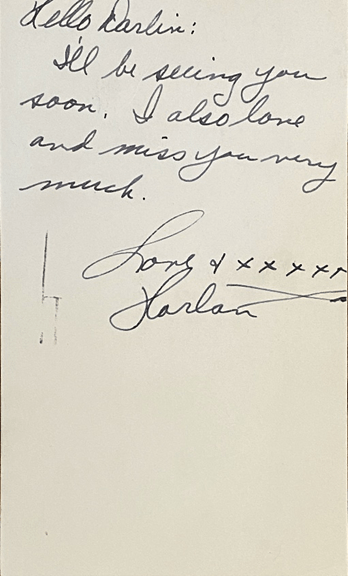 Hello Darlin:
I'll be seeing you
soon. I also love
and miss you very
much.
Love & xxxxx
Harlan